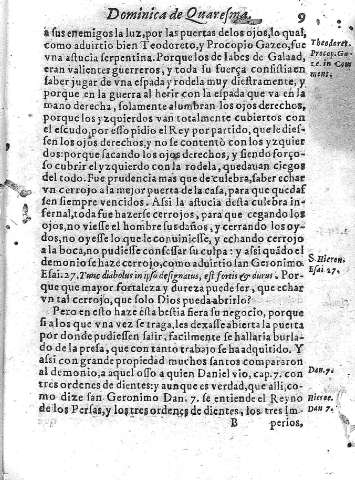 Dominica de Quaresma. 9
a sus enemigos la luz, por las puertas de los ojos, lo qual,
como aduirtio bien Teodoreto, y Procopio Gazeo, fue
vna astucia serpentina. Porque los de Iabes de Galaad,
eran valientes guerreros, y toda su fuerça consistia en
saber jugar de vna espada y rodela muy diestramente, y
porque en la guerra al herir con la espada que va en la
mano derecha, solamente alumbran los ojos derechos,
porque los yzquierdos van totalmente cubiertos con
el escudo, por esso pidio el Rey por partido, que le dies-
sen los ojos derechos, y no se contentò con los yzquier
dos: porque sacando los ojos derechos, y siendo forço-
so cubrir el yzquierdo con la rodela, quedauan ciegos
del todo. Fue prudencia mas que de culebra, saber echar
vn cerrojo a la mejor puerta de la casa, para que quedas
sen siempre vencidos. Assi la astucia desta culebra in-
fernal, toda fue hazerse cerrojos, para que cegando los
ojos, no viesse el hombre sus daños, y cerrando los oy-
dos, no oyesse lo que le conuiniesse, y echando cerrojo
a la boca, no pudiesse confessar su culpa: y assi quãdo el
demonio se haze cerrojo, como aduirtio san Geronimo
Esai. 27. Tunc diabolus in ipso designatus, est fortis & durus. Por-
que que mayor fortaleza y dureza puede ser, que echar
vn tal cerrojo, que solo Dios pueda abrirlo?
Pero en esto haze esta bestia fiera su negocio, porque
si a los que vna vez se traga, les dexasse abierta la puerta
por donde pudiessen salir, facilmente se hallaria burla-
do de la presa, que con tanto trabajo se ha adquitido. Y
assi con grande propiedad muchos santos compararon
al demonio, a aquel osso a quien Daniel vio, cap. 7. con
tres ordenes de dientes: y aunque es verdad, que alli, co-
mo dize san Geronimo Dan. 7. se entiende el Reyno
de los Persas, y los tres ordenes de dientes, los tres Im-
B perios,
Theodoret.
Procop. Ga-
ze. in Com
ment.
S. Hieron.
Esai 27.
Dan. 7.
Hieron.
Dan 7.